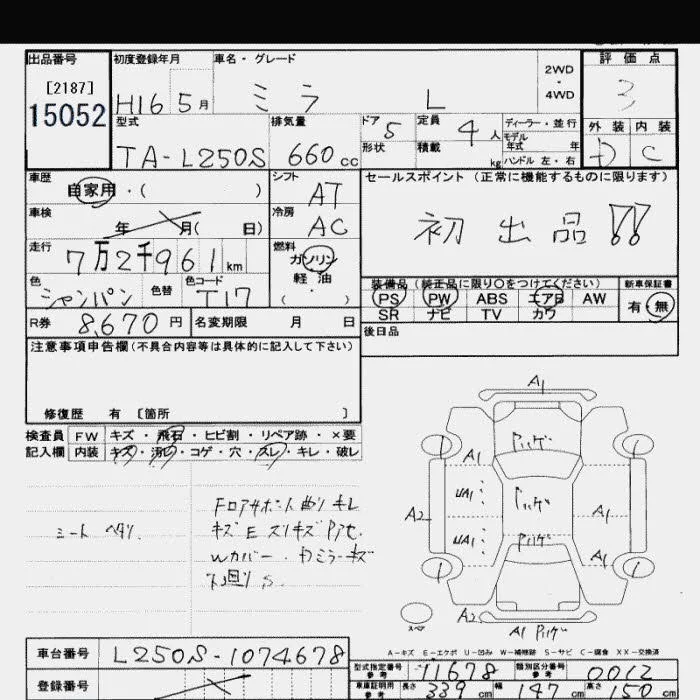 出品番号 初度登録年月 車名・グレード 2WD・4WD 評価点
[2187]
15052
H16 5月 ミラ L 3
型式 排気量 ドア 5 定員 4人 ディーラー・並行 外装 内装
形状 積載 kg モデル年式 年
TA-L250S 660cc ハンドル 左・右 D C
車歴 自家用・( ) シフト AT セールスポイント (正常に機能するものに限ります)
車検 年 月( 日) 冷房 AC 初出品!!
走行 7万2千961km 燃料 ガソリン 軽油 ( ・ )
色 シャンパン 色替 色コード T17
装備品 (純正品に限り○をつけてください) 新車保証書
PS PW ABS エアB AW 有・無
SR ナビ TV カワ
R券 8,670円 名変期限 月 日 後日品
注意事項申告欄(不具合内容等は具体的に記入して下さい)
修復歴 有 [箇所 ]
検査員 FW キズ・飛石・ヒビ割・リペア跡・×要
記入欄 内装 キズ・汚レ・コゲ・穴・スレ・キレ・破レ
シート ヘタリ
キズ E スリキズ
Wカバー・
下廻り S
A1
A1
UA1
A2 A1
UA1
A1
1 1
1 1
スペア A2
A1
A-キズ E-エクボ U-凹み W-補修跡 S-サビ C-腐食 XX-交換済
車台番号 L250S-1074678
型式指定番号 参考 11678 類別区分番号 参考 0062
登録番号
車庫証明用 参考 長さ 339cm 幅 147cm 高さ 150cm